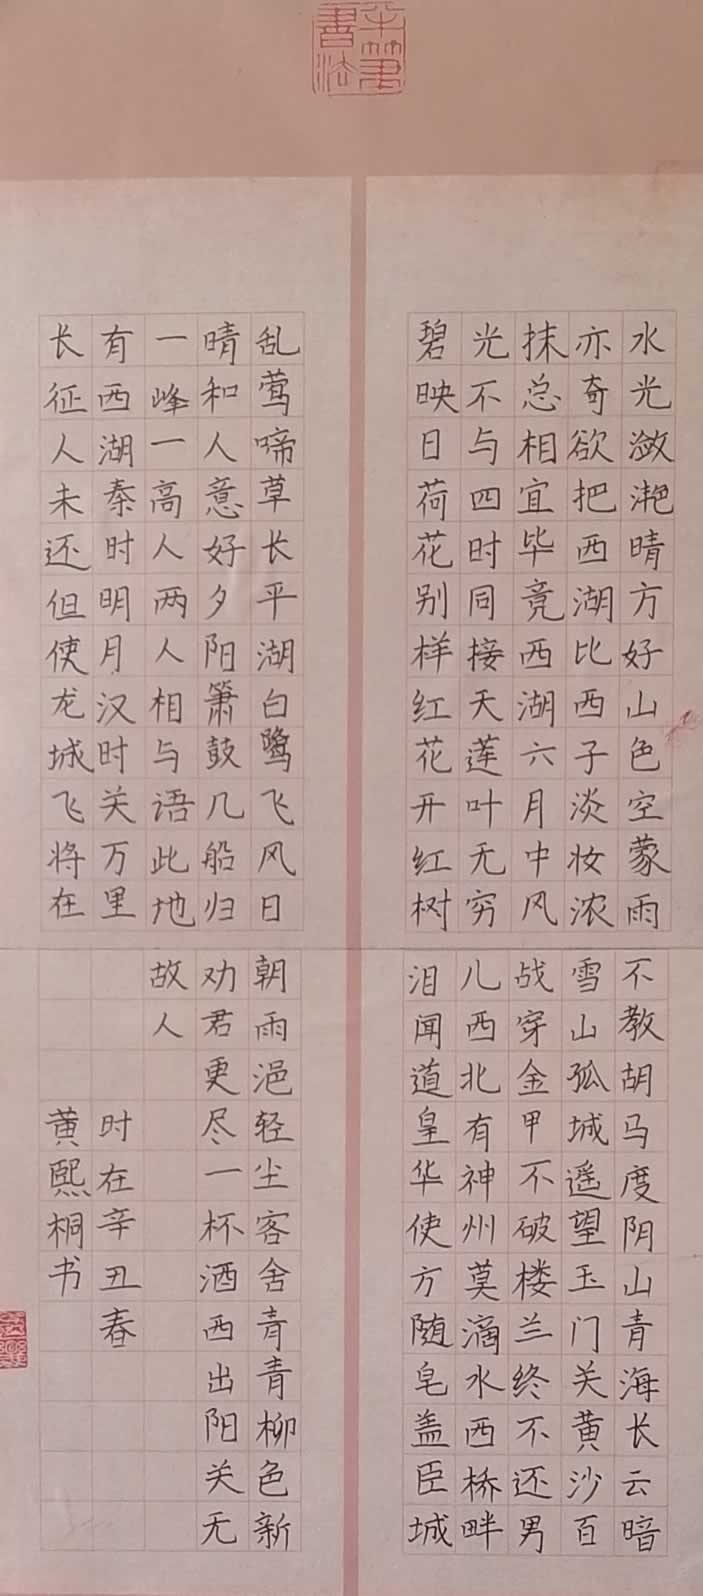 水光潋滟晴方好山色空蒙雨
亦奇欲把西湖比西子淡妆浓
抹总相宜毕竟西湖六月中风
光不与四时同接天莲叶无穷
碧映日荷花别样红花开红树
乱莺啼草长平湖白鹭飞风日
晴和人意好夕阳箫鼓几船归
一峰一高人两人相与语此地
有西湖秦时明月汉时关万里
长征人未还但使龙城飞将在
不教胡马度阴山青海长云暗
雪山孤城遥望玉门关黄沙百
战穿金甲不破楼兰终不还男
儿西北有神州莫滴水西桥畔
泪闻道皇华使方随皂盖臣城
朝雨浥轻尘客舍青青柳色新
劝君更尽一杯酒西出阳关无
故人
时在辛丑春
黄熙桐书
書法